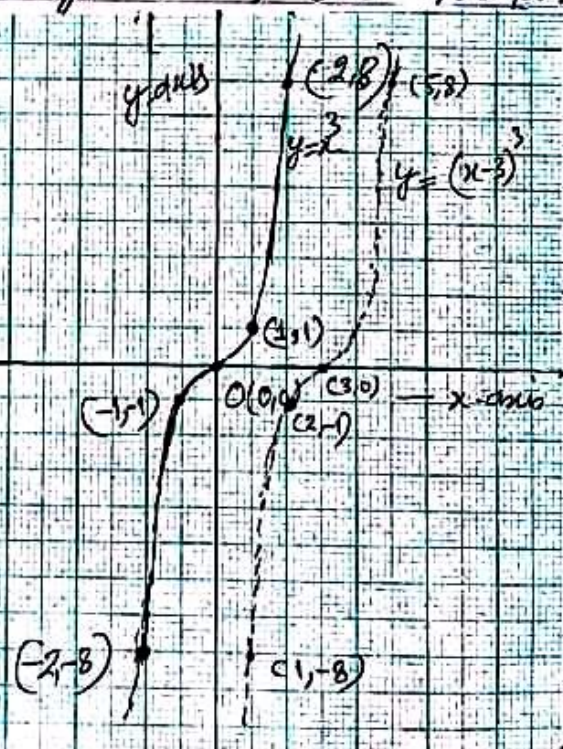 y-axis
(-2,8)
(5,8)
y=x³
y=(x-3)³
(1,1)
(-1,-1)
O(0,0)
(3,0)
x-axis
(2,-1)
(-2,-8)
(1,-8)